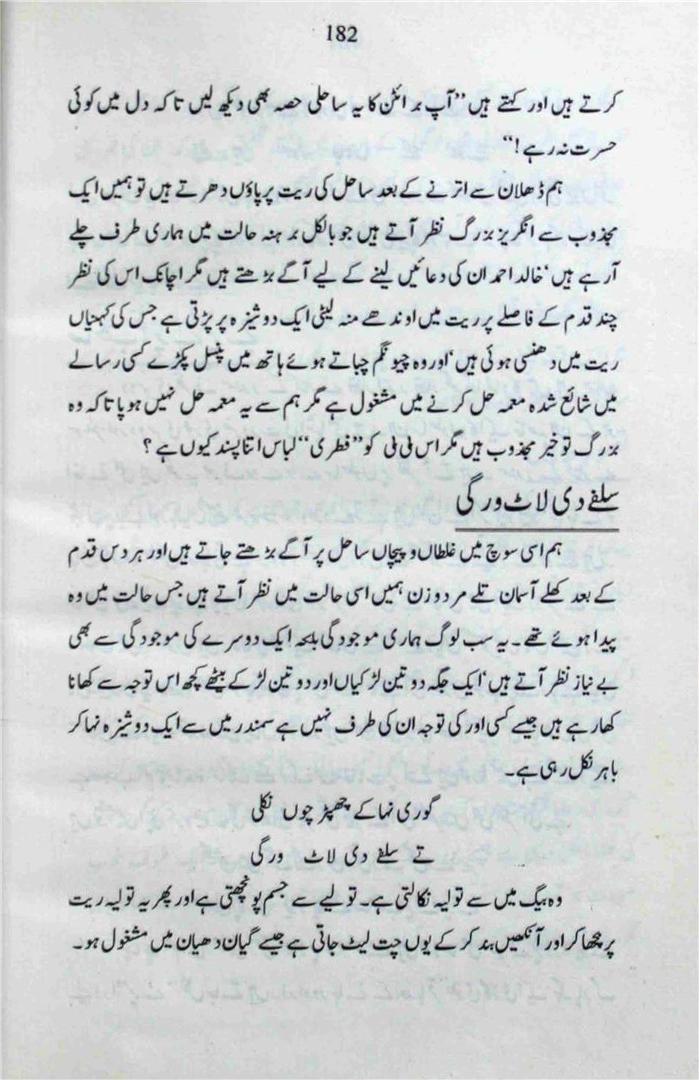 182
کرتے ہیں اور کہتے ہیں ”آپ برائٹن کا یہ ساحلی حصہ بھی دیکھ لیں تاکہ دل میں کوئی
حسرت نہ رہے!“
ہم ڈھلان سے اترنے کے بعد ساحل کی ریت پر پاؤں دھرتے ہیں تو ہمیں ایک
مجذوب سے انگریز بزرگ نظر آتے ہیں جو بالکل برہنہ حالت میں ہماری طرف چلے
آرہے ہیں‘ خالد احمد ان کی دعائیں لینے کے لیے آگے بڑھتے ہیں مگر اچانک اس کی نظر
چند قدم کے فاصلے پر ریت میں اوندھے منہ لیٹی ایک دوشیزہ پر پڑتی ہے جس کی کہنیاں
ریت میں دھنسی ہوئی ہیں‘ اور وہ چیونگم چباتے ہوئے ہاتھ میں پنسل پکڑے کسی رسالے
میں شائع شدہ معمہ حل کرنے میں مشغول ہے مگر ہم سے یہ معمہ حل نہیں ہوپاتا کہ وہ
بزرگ تو خیر مجذوب ہیں مگر اس بی بی کو ”فطری“ لباس اتنا پسند کیوں ہے؟
سلفے دی لاٹ ورگی
ہم اسی سوچ میں غلطاں و پیچاں ساحل پر آگے بڑھتے جاتے ہیں اور ہر دس قدم
کے بعد کھلے آسمان تلے مرد و زن ہمیں اسی حالت میں نظر آتے ہیں جس حالت میں وہ
پیدا ہوئے تھے۔ یہ سب لوگ ہماری موجودگی بلکہ ایک دوسرے کی موجودگی سے بھی
بے نیاز نظر آتے ہیں‘ ایک جگہ دو تین لڑکیاں اور دو تین لڑکے بیٹھے کچھ اس توجہ سے کھانا
کھارہے ہیں جیسے کسی اور کی توجہ ان کی طرف نہیں ہے سمندر میں سے ایک دوشیزہ نہا کر
باہر نکل رہی ہے۔
گوری نہا کے چھپڑ چوں نکلی
تے سلفے دی لاٹ ورگی
وہ بیگ میں سے تولیہ نکالتی ہے۔ تولیے سے جسم پونچھتی ہے اور پھر یہ تولیہ ریت
پر بچھا کر اور آنکھیں بند کر کے یوں چت لیٹ جاتی ہے جیسے گیان دھیان میں مشغول ہو۔